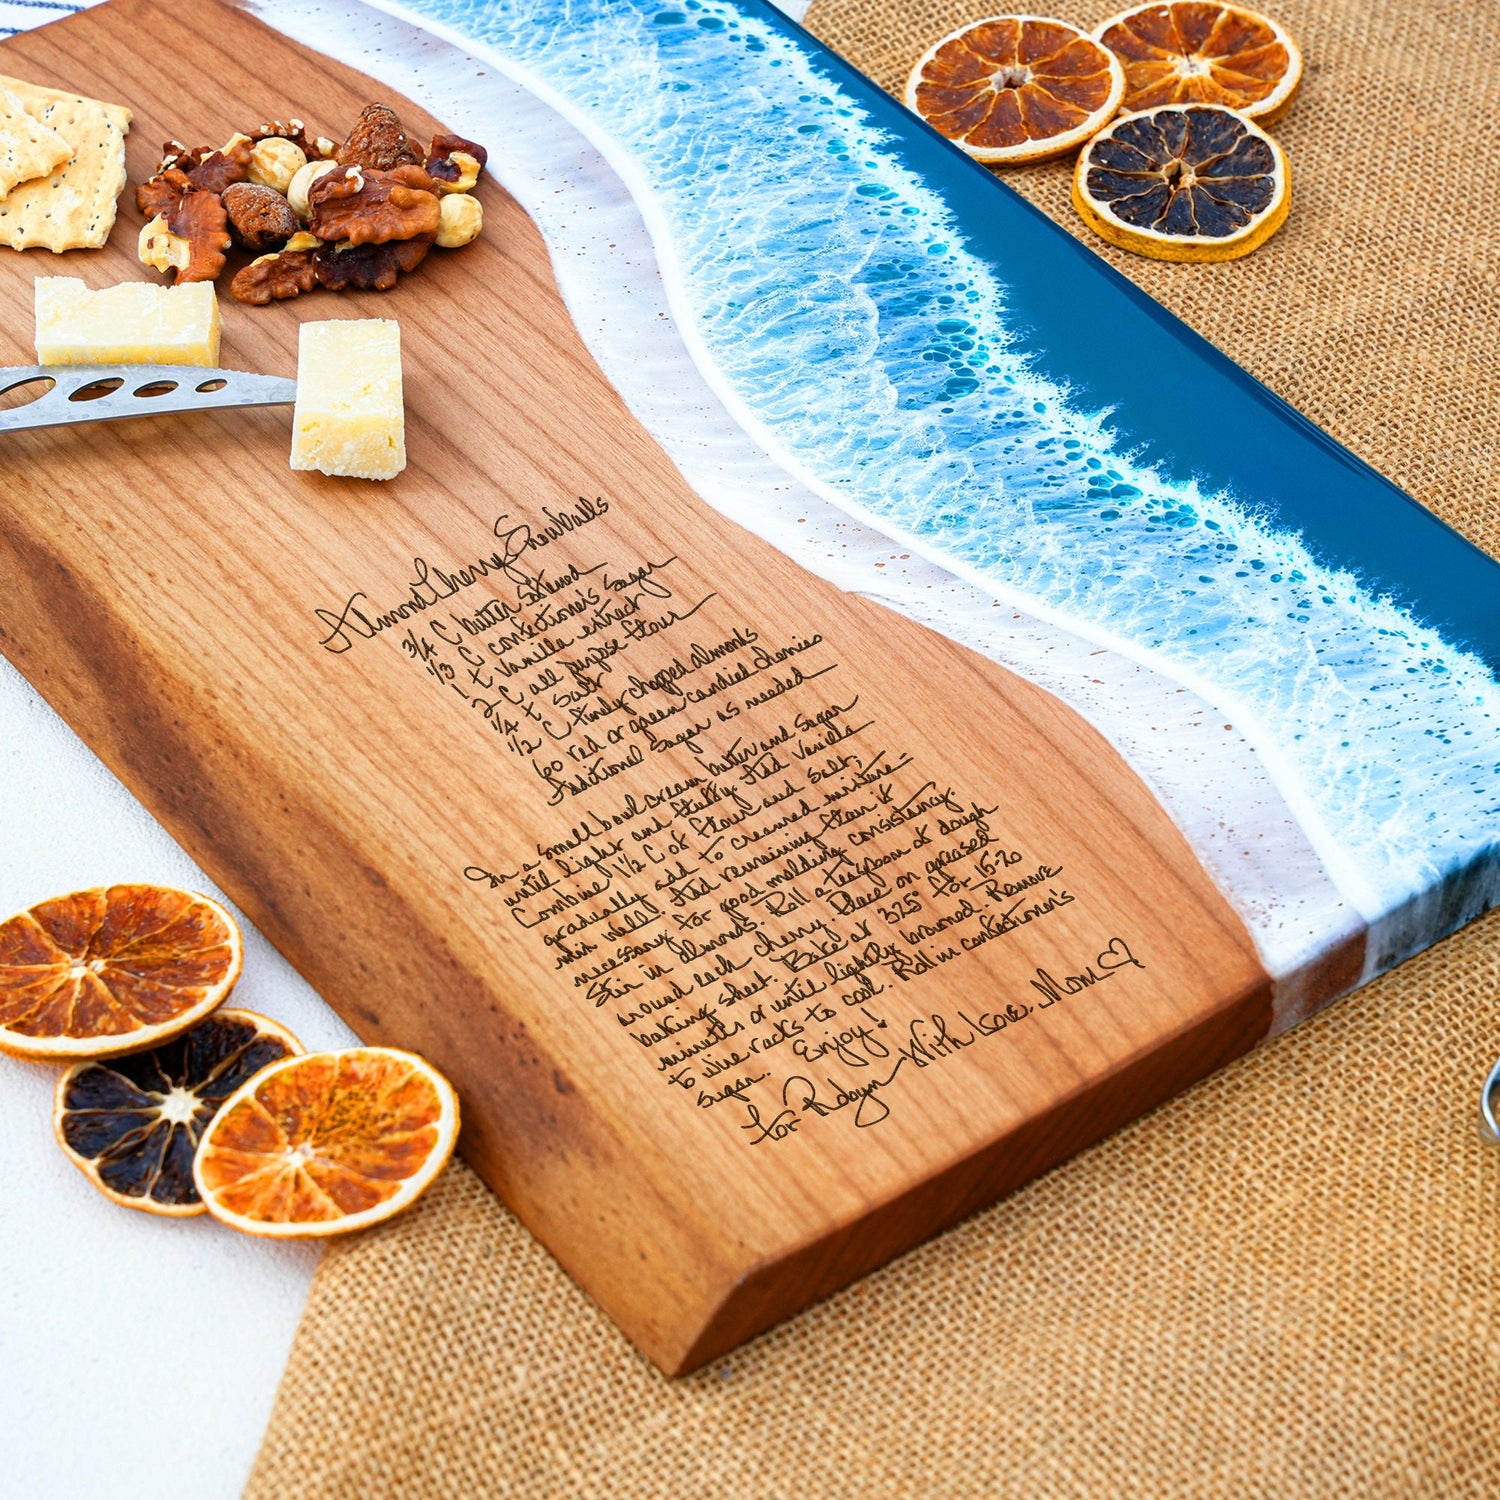 Almond Cherry Snowballs
3/4 C butter softened
1/3 C confectioner's sugar
1 t vanilla extract
2 C all purpose flour
1/4 t salt
1/2 C finely chopped almonds
60 red or green candied cherries
Additional sugar as needed
In a small bowl cream butter and sugar
until light and fluffy. Add vanilla
Combine 1 1/2 C of flour and salt;
gradually add to creamed mixture-
mix well. Add remaining flour if
necessary for good molding consistency.
Stir in almonds. Roll a teaspoon of dough
around each cherry. Place on greased
baking sheet. Bake at 325° for 15-20
minutes or until lightly browned. Remove
to wire racks to cool. Roll in confectioner's
sugar. Enjoy!
For Robyn - With Love, Mom ♡